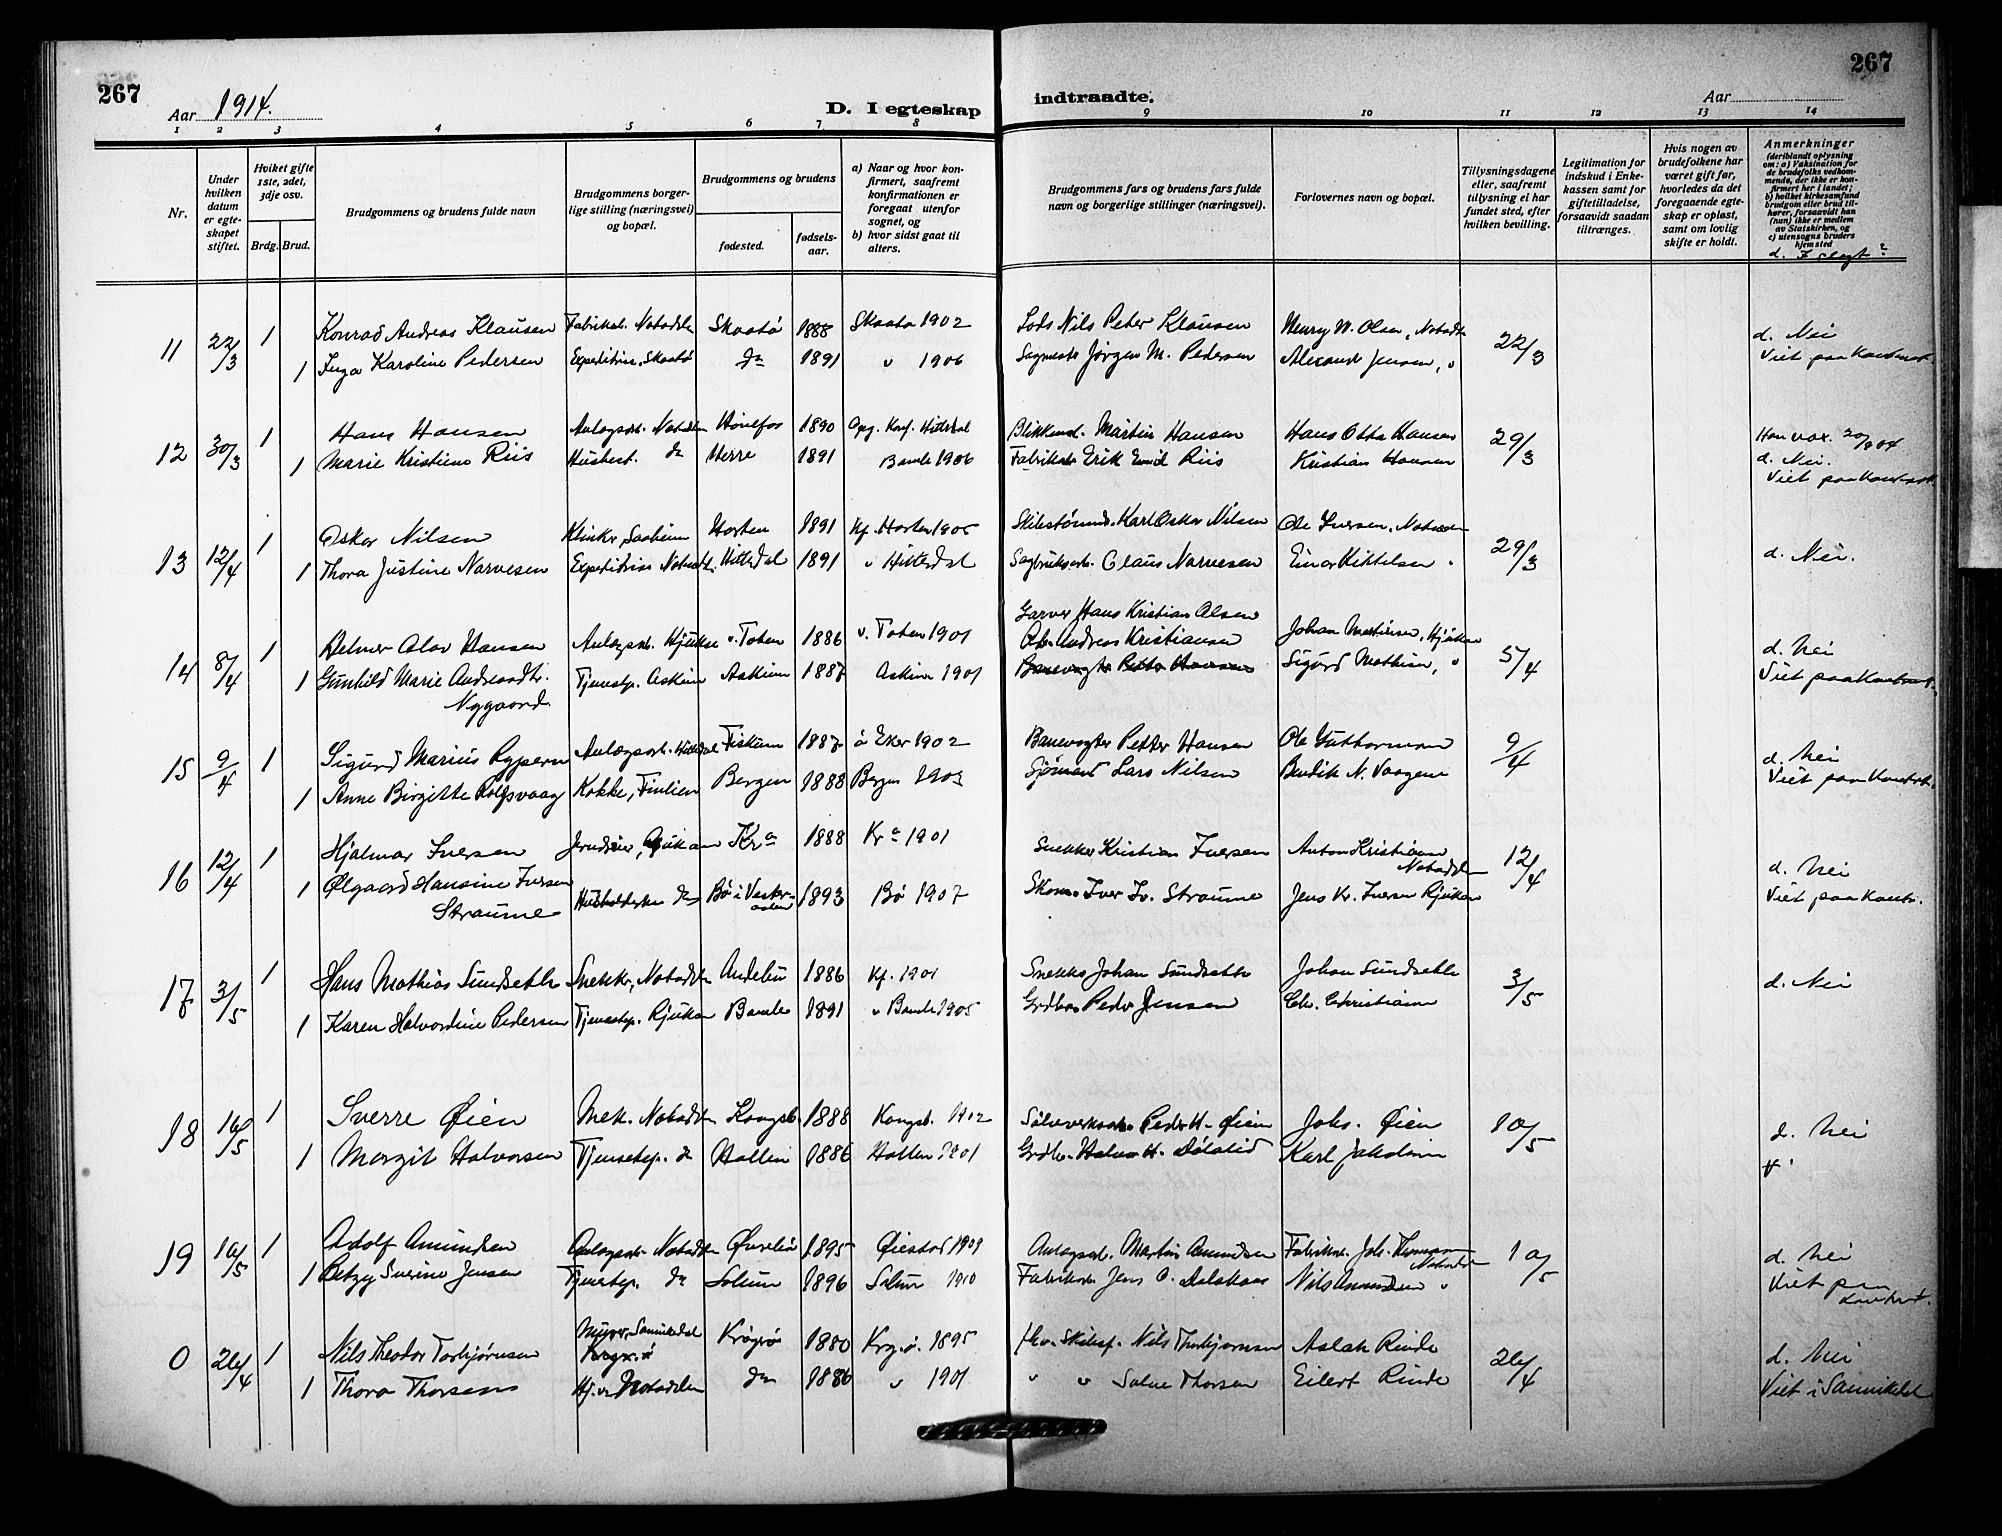 267
Aar 1914.
D. I egteskap
indtraadte.
Aar
267
1 2 3 4 5 6 7 8 9 10 11 12 13 14
Nr.
Under hvilken datum er egteskapet stiftet.
Hviket gifte 1ste, 2det, 3dje osv.
Brdg. Brud.
Brudgommens og brudens fulde navn
Brudgommens borgerlige stilling (næringsvei) og bopæl.
Brudgommens og brudens
fødested.
fødselsaar.
a) Naar og hvor konfirmert, saafremt konfirmationen er foregaat utenfor sognet, og
b) hvor sidst gaat til alters.
Brudgommens fars og brudens fars fulde navn og borgerlige stillinger (næringsvei).
Forlovernes navn og bopæl.
Tillysningsdagene eller, saafremt tillysning ei har fundet sted, efter hvilken bevilling.
Legitimation for indskud i Enkekassen samt for giftetilladelse, forsaavidt saadan tiltrænges.
Hvis nogen av brudefolkene har været gift før, hvorledes da det foregaaende egteskap er opløst, samt om lovlig skifte er holdt.
Anmerkninger
(deriblandt oplysning om: a) Vaksination for de brudefolks vedkommende, der ikke er konfirmert her i landet; b) hvilket kirkesamfund brudgom eller brud tilhører, forsaavidt han (hun) ikke er medlem av Statskirken, og c) utensogns bruders hjemsted
d. I slegt?
11 22/3 1 Konrad Andreas Klausen Fabrikarb. Notodden Skaatø 1888 Skaatø 1902 Lods Nils Peter Klausen Henry W. Olsen, Notodd. 22/3 d. Nei
1 Inga Karoline Pedersen Expeditrice, Skaatø do 1891 " 1906 Sagmester Jørgen M. Pedersen Alexand. Jensen, " Viet paa Kontoret.
12 30/3 1 Hans Hansen Anlægsarb. Notodden Hønefos 1890 Opg. Konf. Hitterdal Blikkensl. Martin Hansen Hans Otto Hansen 29/3 Han vax. 20/9 04
1 Marie Kristine Riis Husbest. do Herre 1891 Bamle 1906 Fabrikarb. Erik Emil Riis Kristian Hansen d. Nei.
Viet paa Kontoret.
13 12/4 1 Oskar Nilsen Klinker, Saaheim Horten 1891 Kf. Horten 1905 Skibstømmerm. Karl Oskar Nilsen Ole Iversen, Notodden 29/3 d. Nei.
1 Thora Justine Narvesen Expeditrice Notodd. Hitterdal 1891 " Hitterdal Sagbruksarb. Claus Narvesen Einar Kittelsen "
Garver Hans Kristian Olsen
14 8/4 1 Helmer Olav Hansen Anlægsarb. Hjukse v. Toten 1886 v. Toten 1901 Arb. Andreas Kristiansen Johan Mathisen, Hjukse 5/4 d. Nei
1 Gunhild Marie Andreasdtr. Tjenestp. Askim Askim 1887 Askim 1901 Banevogter Petter Hansen Sigurd Mathisen, " Viet paa Kontoret.
Nygaard
15 9/4 1 Sigurd Marius Rypern Anlægsarb. Hitterdal Fiskum 1887 ø Eker 1902 Banevogter Petter Hansen Ole Guttormsen 9/4 d. Nei
1 Anne Birgitte Rolfsvaag Kokke, Tinlien Bergen 1888 Bergen 1903 Sjømand Lars Nilsen Bendik N. Vaagene Viet paa Kontoret.
16 12/4 1 Hjalmar Iversen Jerndreier, Rjukan Kr.a 1888 Kr.a 1901 Snekker Kristian Iversen Anton Kristiansen 12/4 d. Nei
Notodden
1 Ølgaard Hansine Iversen Husholderske do Bø i Vesteraalen 1893 Bø 1907 Skom. Iver Iv. Straume Jens Kr. Iversen Rjukan Viet paa Kontr.
Straume
17 3/5 1 Hans Mathias Sundseth Snekker, Notodden Andebu 1886 Kf. 1901 Snekker Johan Sundseth Johan Sundseth 3/5 d. Nei
1 Karen Halvordine Pedersen Tjenestep. Rjukan Bamle 1891 " Bamle 1905 Grdbr. Peder Jensen Chr. Christiansen
18 16/5 1 Sverre Øien Mek. Notodden Kongsb. 1888 Kongsb. 1902 Sølvverksarb. Peder H. Øien Johs. Øien 10/5 d. Nei
1 Margit Halvorsen Tjenestep. do Hollen 1886 Hollen 1901 Grdbr. Halvor H. Dølalid Karl Jakobsen
19 16/5 1 Adolf Amundsen Anlægsarb. Notodden Øvrebø 1895 Øiestad 1909 Anlægsarb. Martin Amundsen Fabrikarb. Joh. Thomasen 10/5 d. Nei
Notodden
1 Betzy Severine Jensen Tjenestep. do Solum 1896 Solum 1910 Fabrikarb. Jens O. Dalskaas Nils Amundsen " Viet paa
Kontoret.
0 26/4 1 Nils Theodor Torbjørnsen Murer, Sannikedal Kragerø 1880 Krg.ø. 1895 fhv. Skibsf. Nils Thorbjørnsen Aslak Rinde 26/4 d. Nei
Krag.ø
1 Thora Thorsen Hj.v. Notodden do 1886 " 1901 " " Salve Thorsen Eilert Rinde Viet i Sannikedal